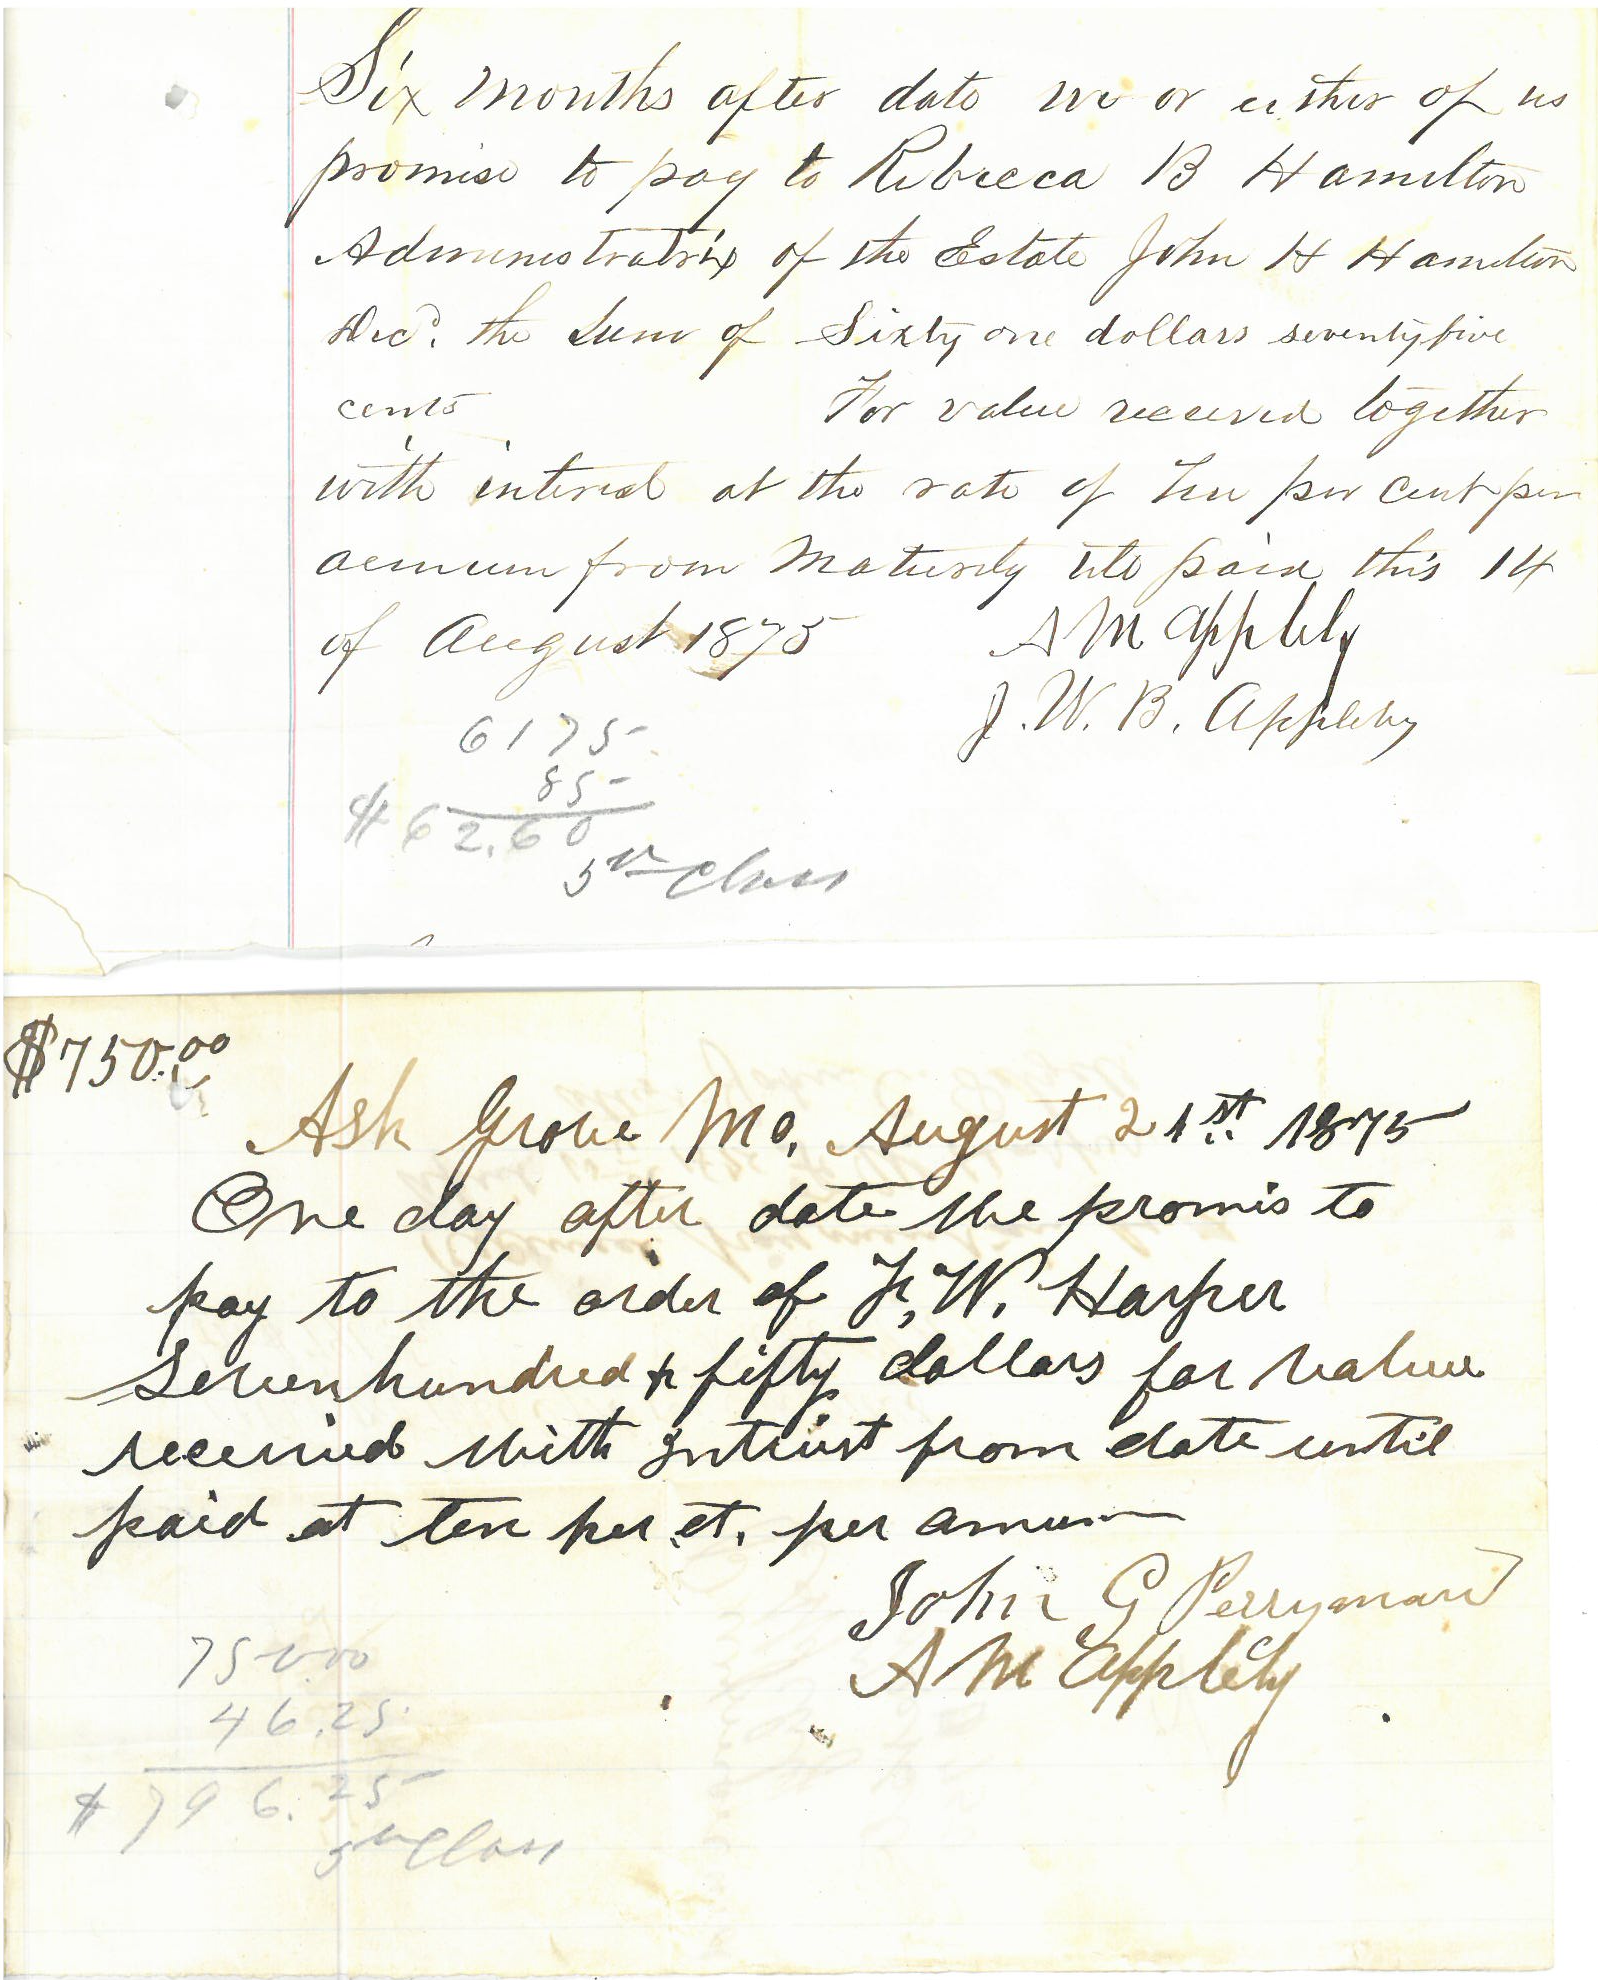 Six Months after date we or either of us
promise to pay to Rebecca B Hamilton
Administratrix of the Estate John H Hamilton
Decd. the Sum of Sixty one dollars seventyfive
cents For value received together
with interest at the rate of Ten per cent per
annum from Maturity till paid this 14
of August 1875 A M Appleby
J. W. B. Appleby
6175
85
$62.60
5th Class
$750.00
Ash Grove Mo. August 21st 1875
One day after date we promis to
pay to the order of F. W. Harper
Sevenhundred & fifty dollars for value
received with Intrust from date until
paid at ten per ct. per annum
John G Perryman
A M Appleby
750.00
46.25
$796.25
5th Class